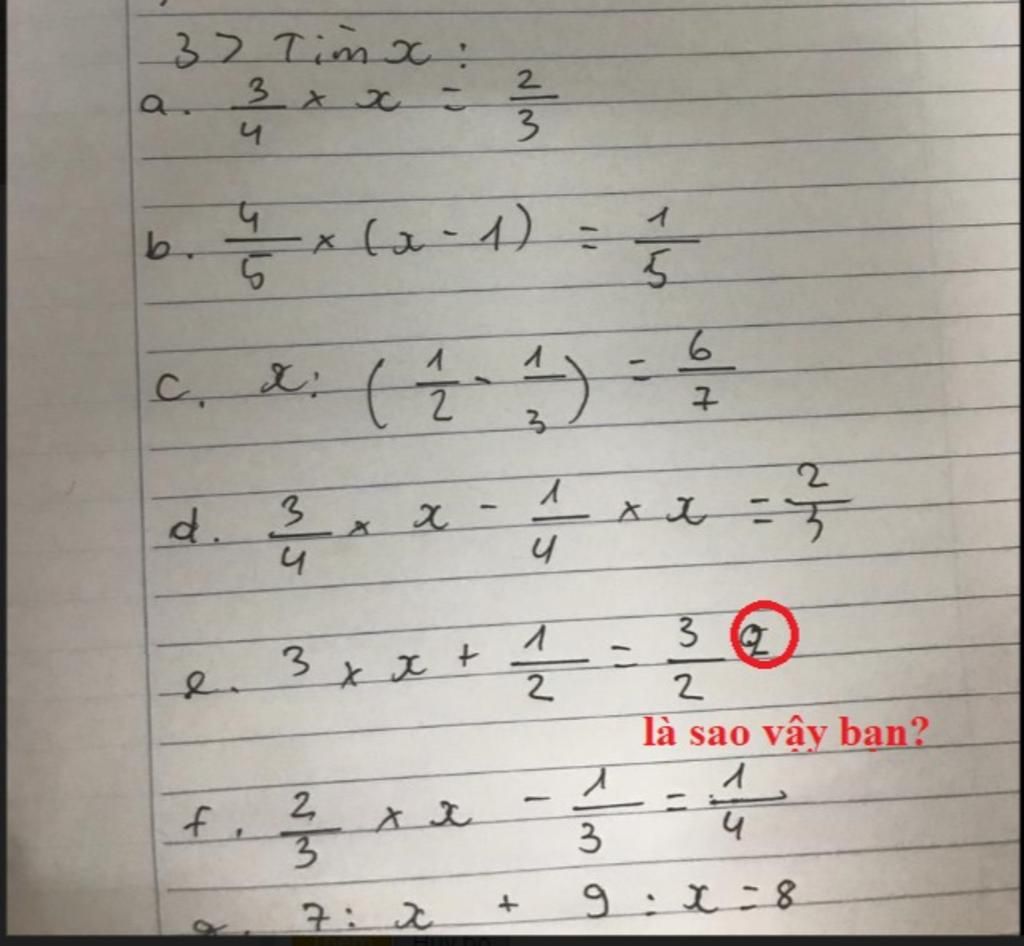 3> Tìm x:
a. 3/4 × x = 2/3
b. 4/5 × (x - 1) = 1/5
c. x: (1/2 - 1/3) = 6/7
d. 3/4 × x - 1/4 × x = 2/3
e. 3 × x + 1/2 = 3/2
là sao vậy bạn?
f. 2/3 × x - 1/3 = 1/4
7: x + 9 : x = 8